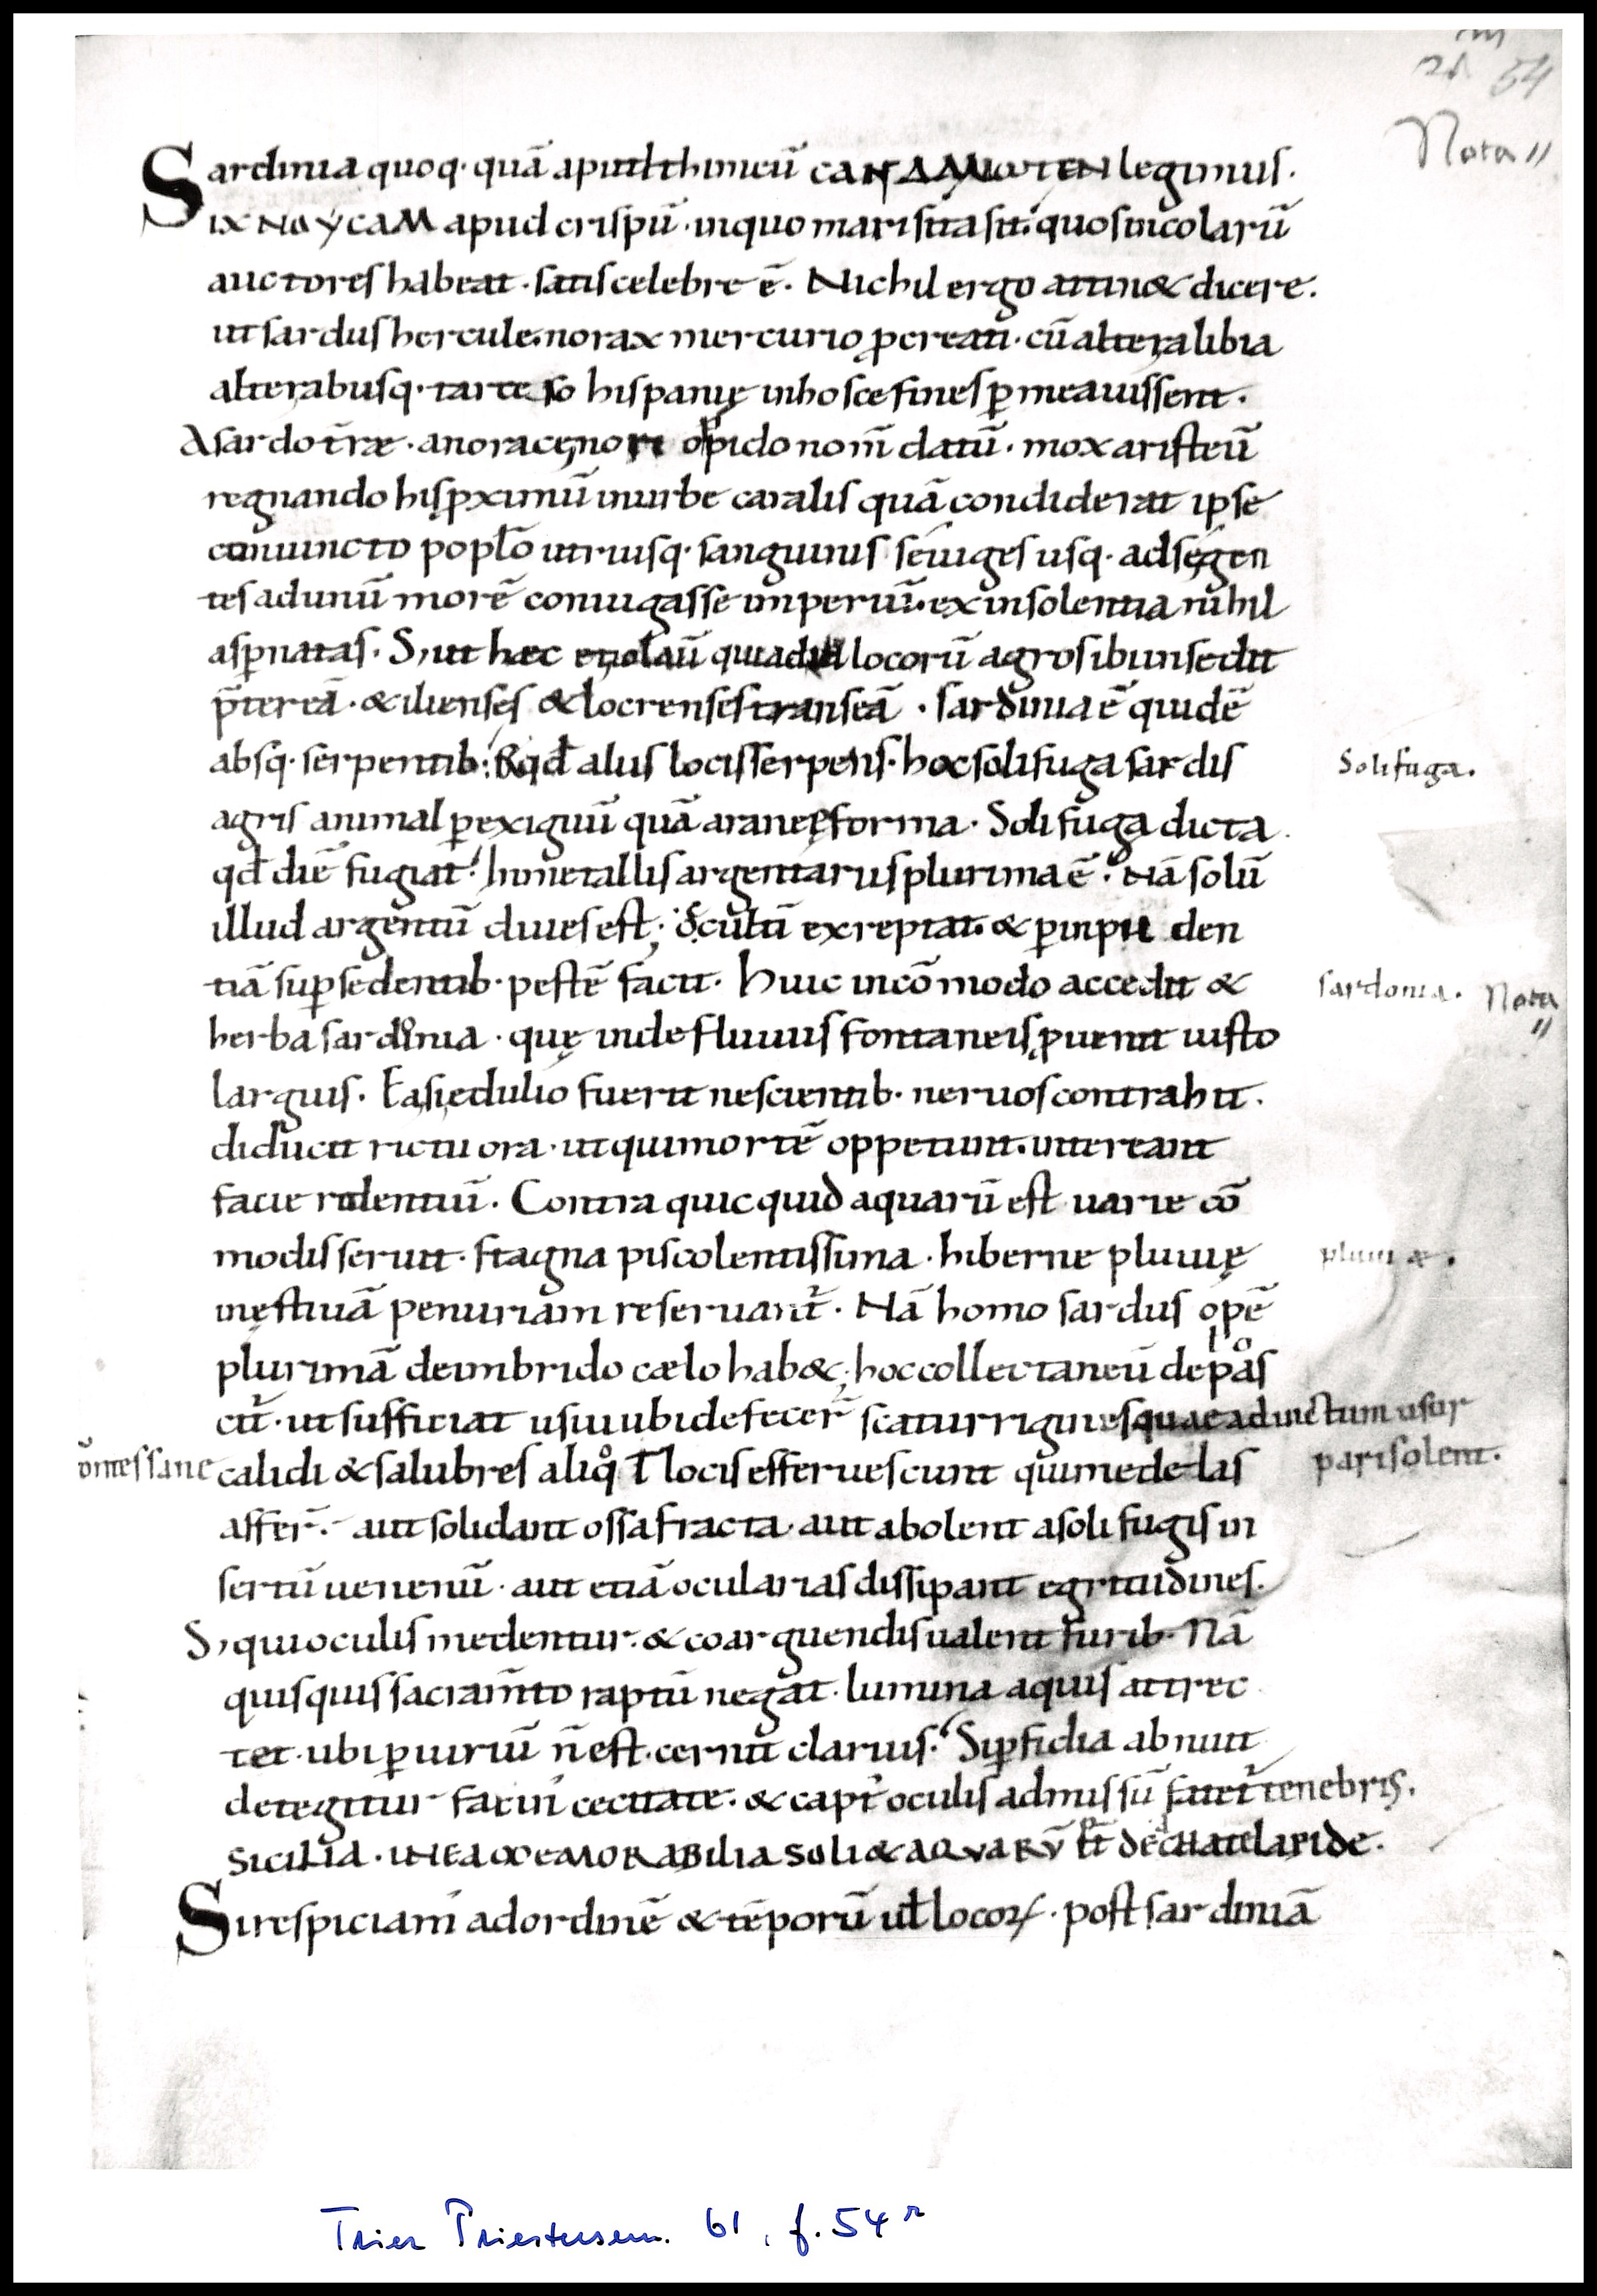 54
Nota
Sardinia quoq· quā apud thimeū legimus·
apud crispū· inquo mari sita sit· quos incolarū
auctores habeat· satis celebre ē· Nichil ergo attin& dicere·
ut sardus hercule· norax mercurio pcreati· cū alter alibia
alter abusq· tartesso hispanię inhosce fines pmeauissent·
A sardo t̄ræ· anorace nore opido nom̄ datū· mox aristeū
regnando his pximū inurbe caralis quā condiderat ipse
coniuncto poplō utriusq· sanguinis seiuges usq· adse gen
tes adunū morē coniugasse imperiū· exinsolentia nihil
aspnatas· S; ut hæc &iolaū quiad locorū agros ibi insedit
p̄tereā· &ilienses &locrenses transeā· sardinia ē quidē
absq· serpentib· Sed qd̄ aliis locis serpens· hoc solifuga sardis
Solifuga·
agris animal pexiguū quā araneę forma· Solifuga dicta
qd̄ diē fugiat· Inmetallis argentariis plurima ē· Nā solū
illud argentū diues est; occultī exreptat· & pinpru den
tiā supsedentib· pestē facit· Huic incōmodo accedit &
sardonia· Nota
herba sardonia· quę inde fluuiis fontaneis puenit iusto
largius· Ea si edulio fuerit nescientib· neruos contrahit·
diducit rictu ora· ut qui mortē oppetunt· intereant
facie ridentiū· Contra quicquid aquarū est uarie cō
modis seruit· stagna piscolentissima· hiberne pluuię
pluuiæ·
inęstiuā penuriam reseruant̄· Nā homo sardus opē
plurimā deimbrido cælo hab&; hoc collectaneū depas
cit̄· ut sufficiat usui ubi defecer̄ scaturrigines quae aduictum usur
pari solent·
fontes sane calidi &salubres aliqͦt locis efferuescunt qui medelas
affer̄· aut solidant ossa fracta· aut abolent asolifugis in
sertū uenenū· aut etiā ocularias dissipant egritudines·
S; qui oculis medentur· & coarguendis ualent furib· Nā
quisquis sacram̄to raptū negat· lumina aquis attrec
tet· ubi piuriū n̄ est· cernit clarius· Si pfidia abnuit
detegitur facin̄ cecitate· & capt' oculis admissū fatet̄ tenebris·
SICILIA· IN EA MEMORABILIA SOLI & AQUARŪ
Si respiciam ad ordinē & tēporū ul̄ locorꝝ· post sardiniā
Trier Priestersem. 61, f. 54ʳ